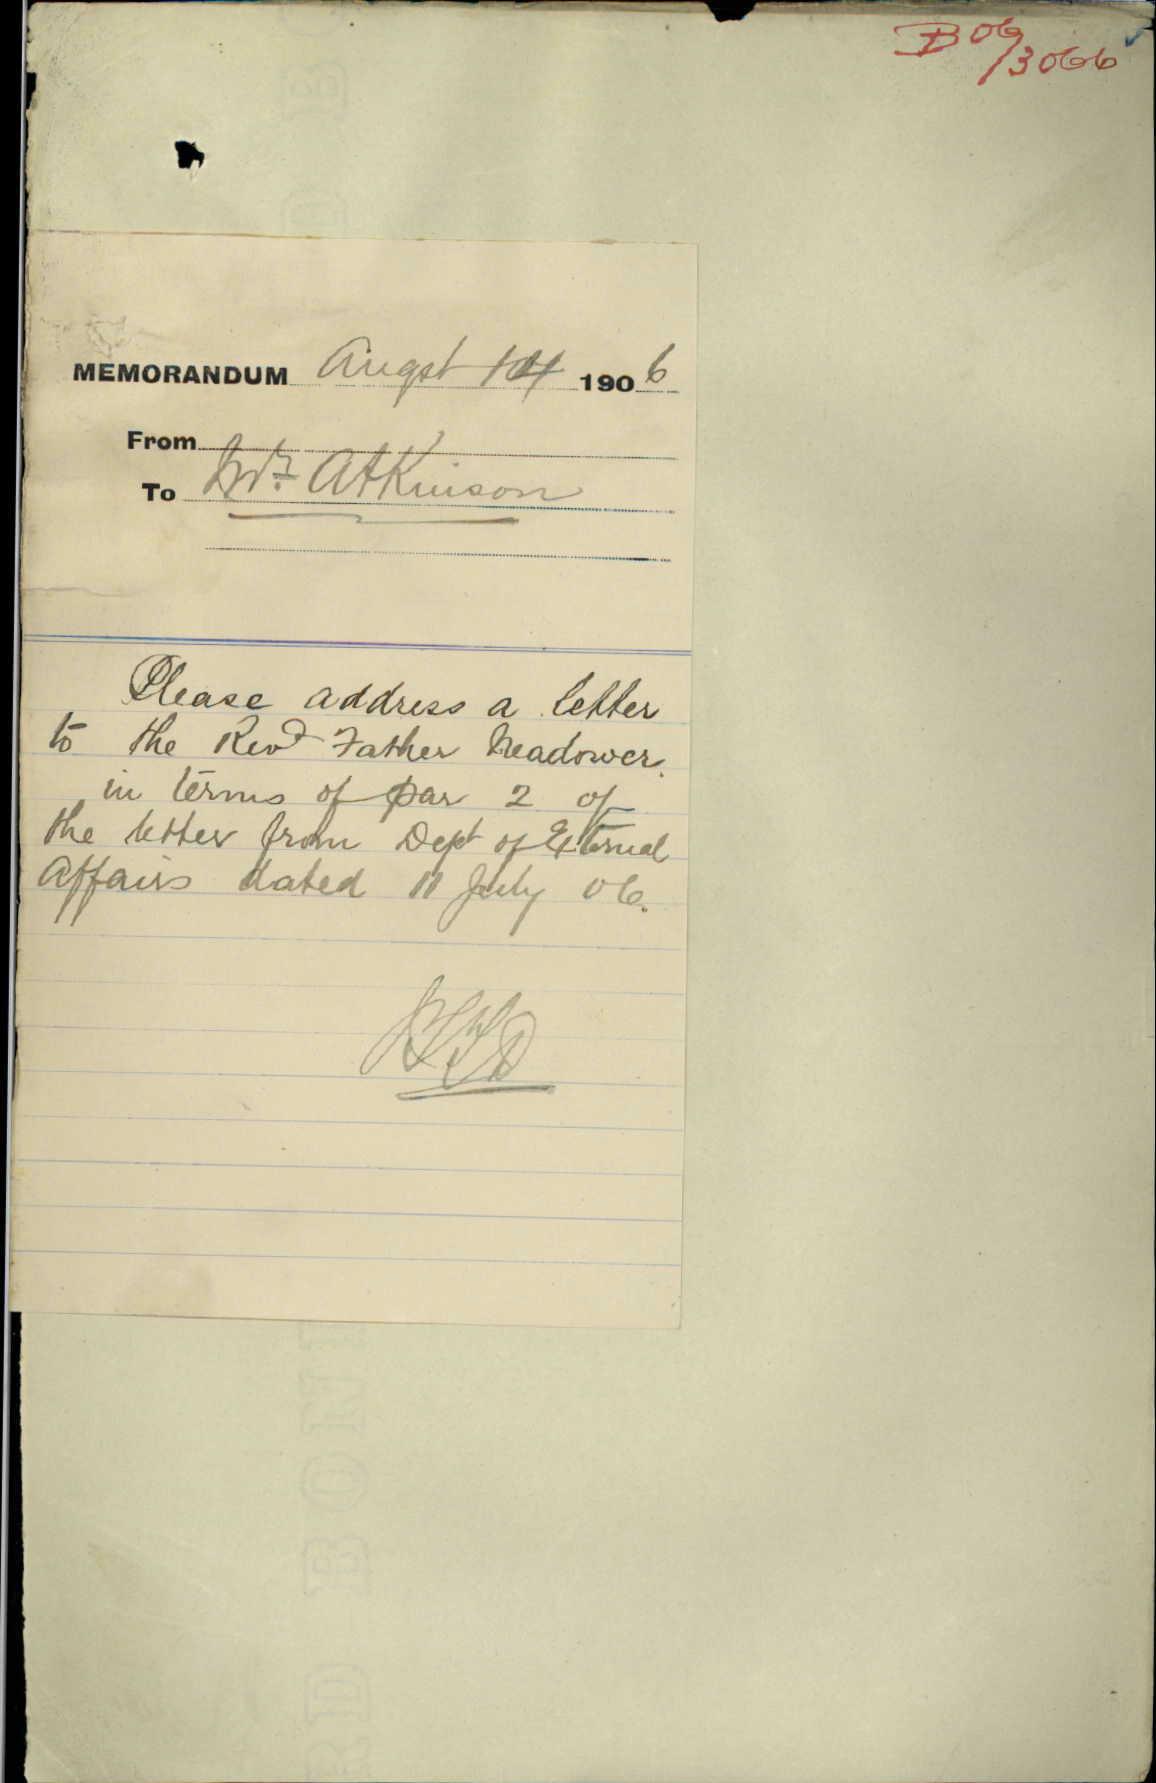 B 06/3066
MEMORANDUM Augst 14 1906
From
To Mr. Atkinson
Please address a letter
to the Revd Father Meadower.
in terms of par 2 of
the letter from Dept of External
Affairs dated 11 July 06.